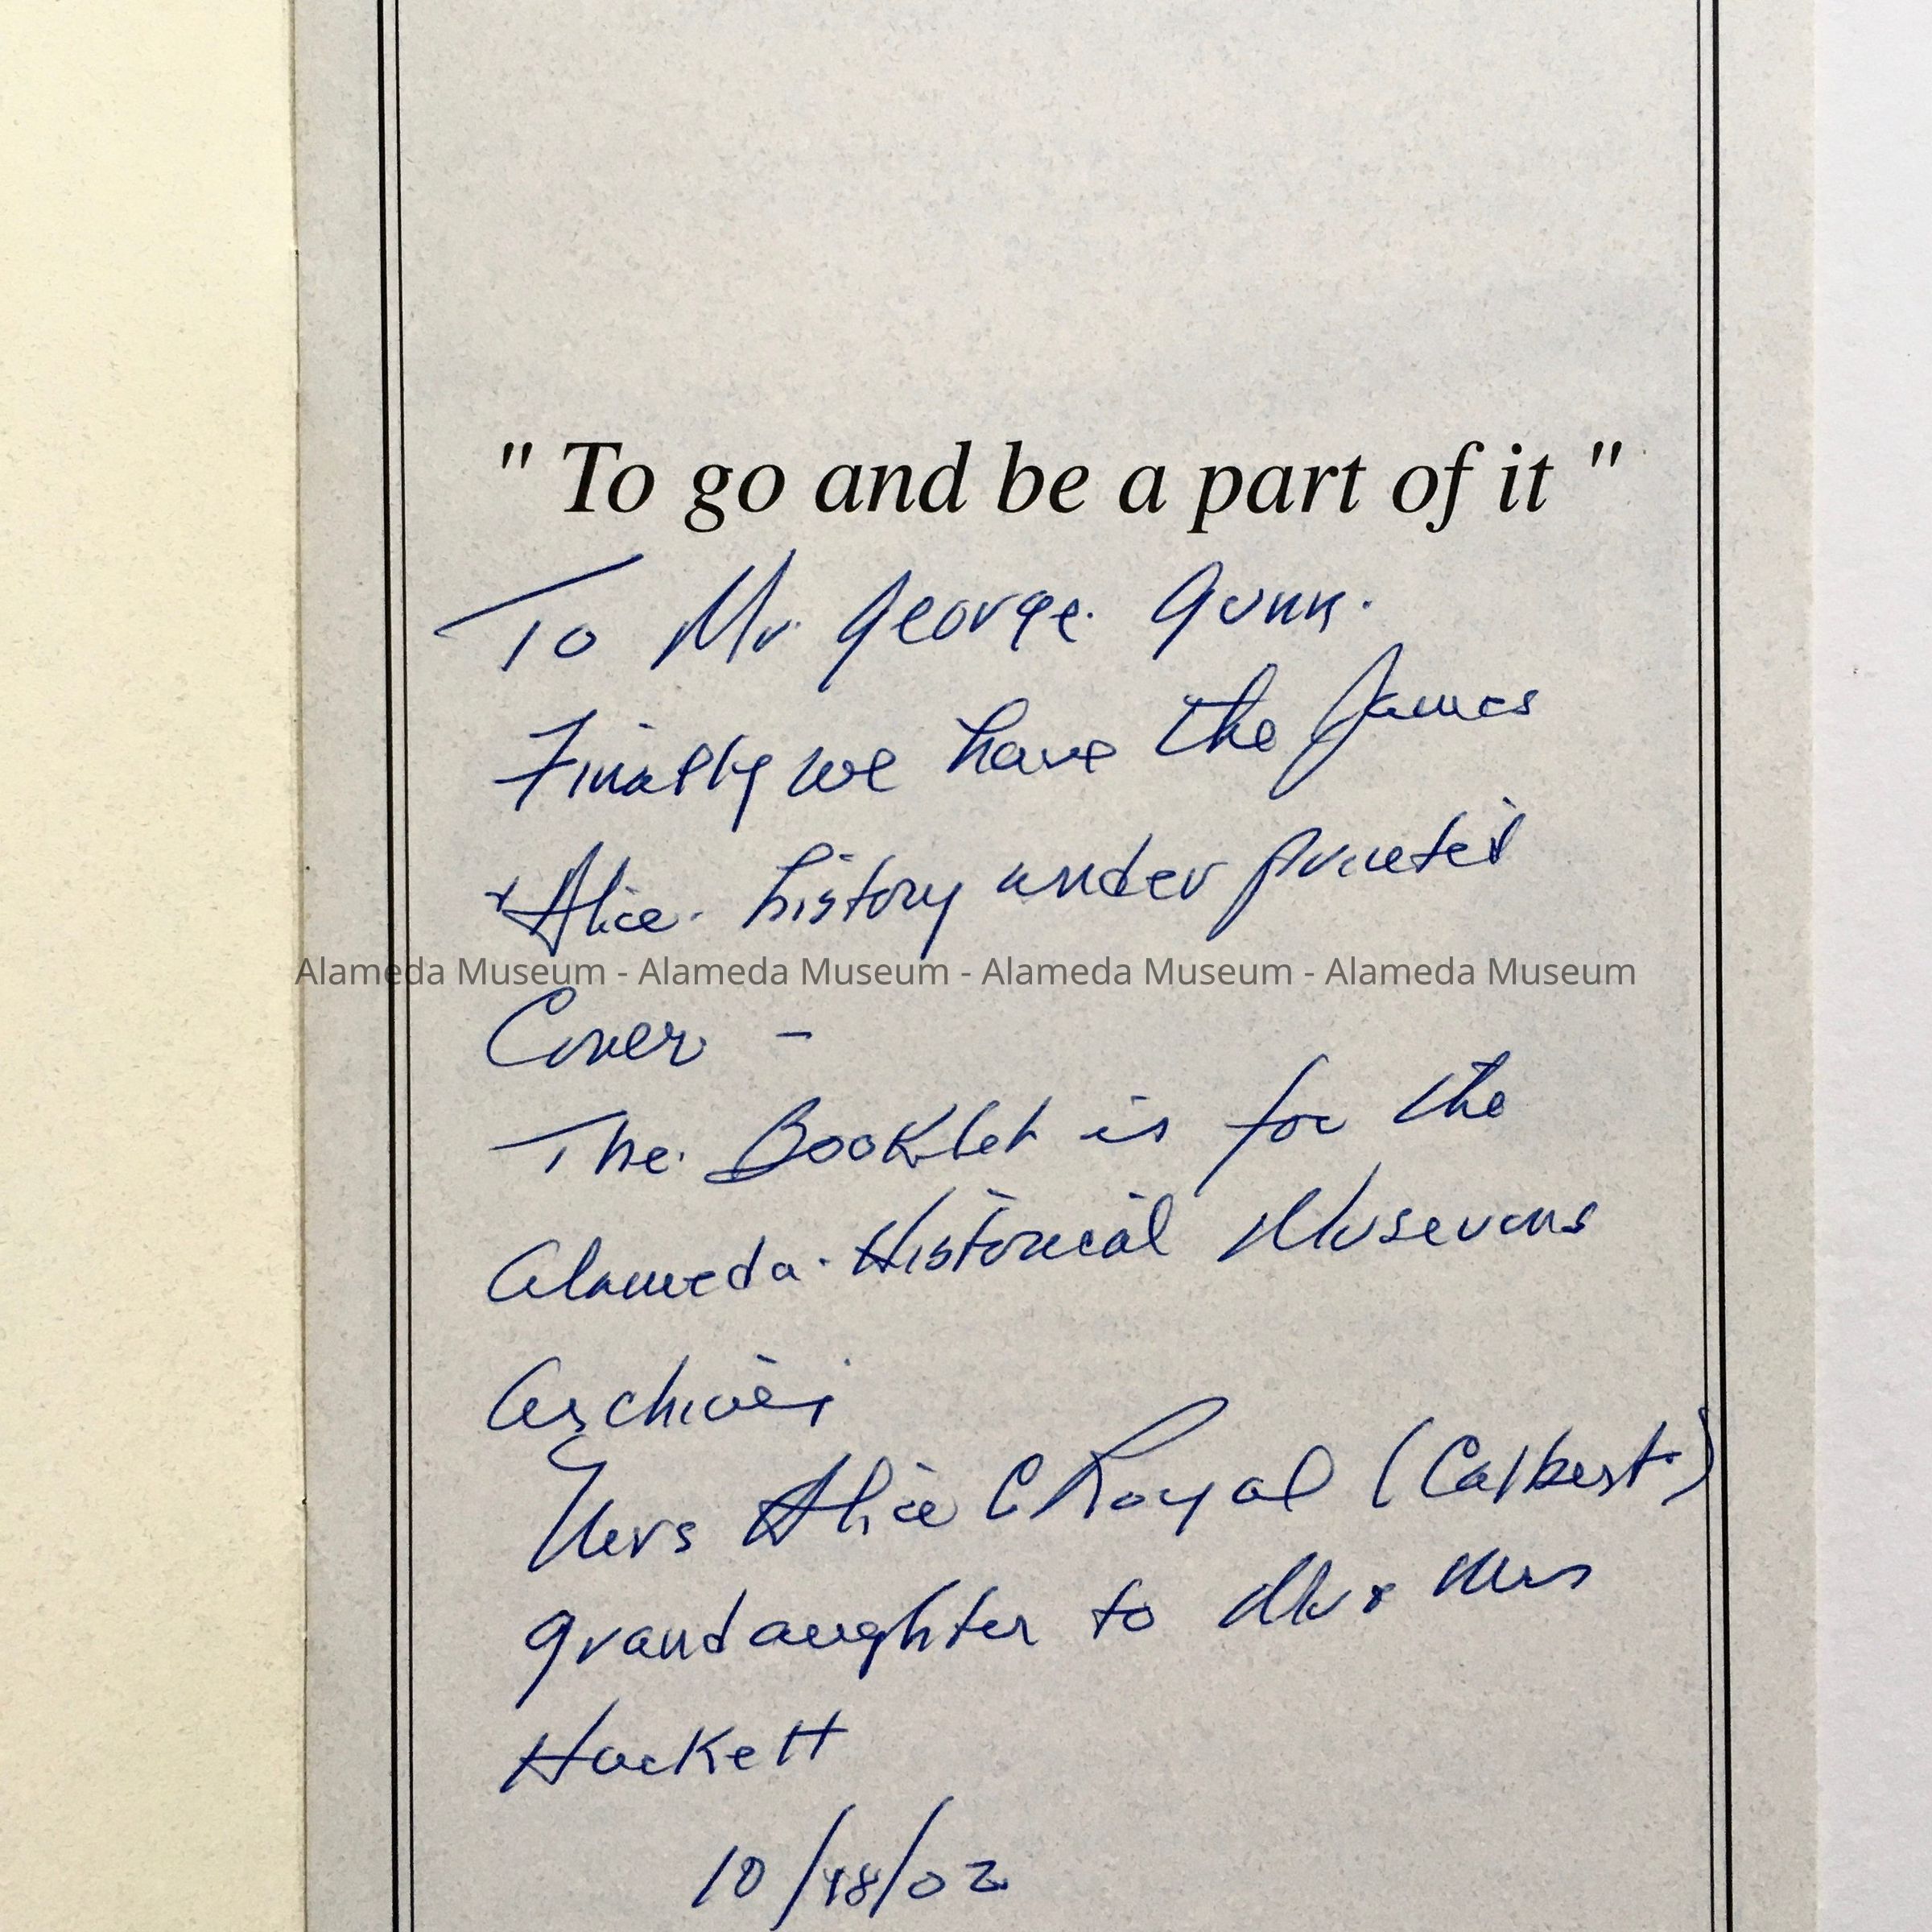 " To go and be a part of it "
To Mr. George. Gunn.
Finally we have the James
+ Alice. history under printed
Alameda Museum - Alameda Museum - Alameda Museum - Alameda Museum
Cover -
The. Booklet is for the
Alameda. Historical Museums
Archives
Mrs Alice C Royal (Calbert)
grandaughter to Mr & Mrs
Hackett
10/18/02